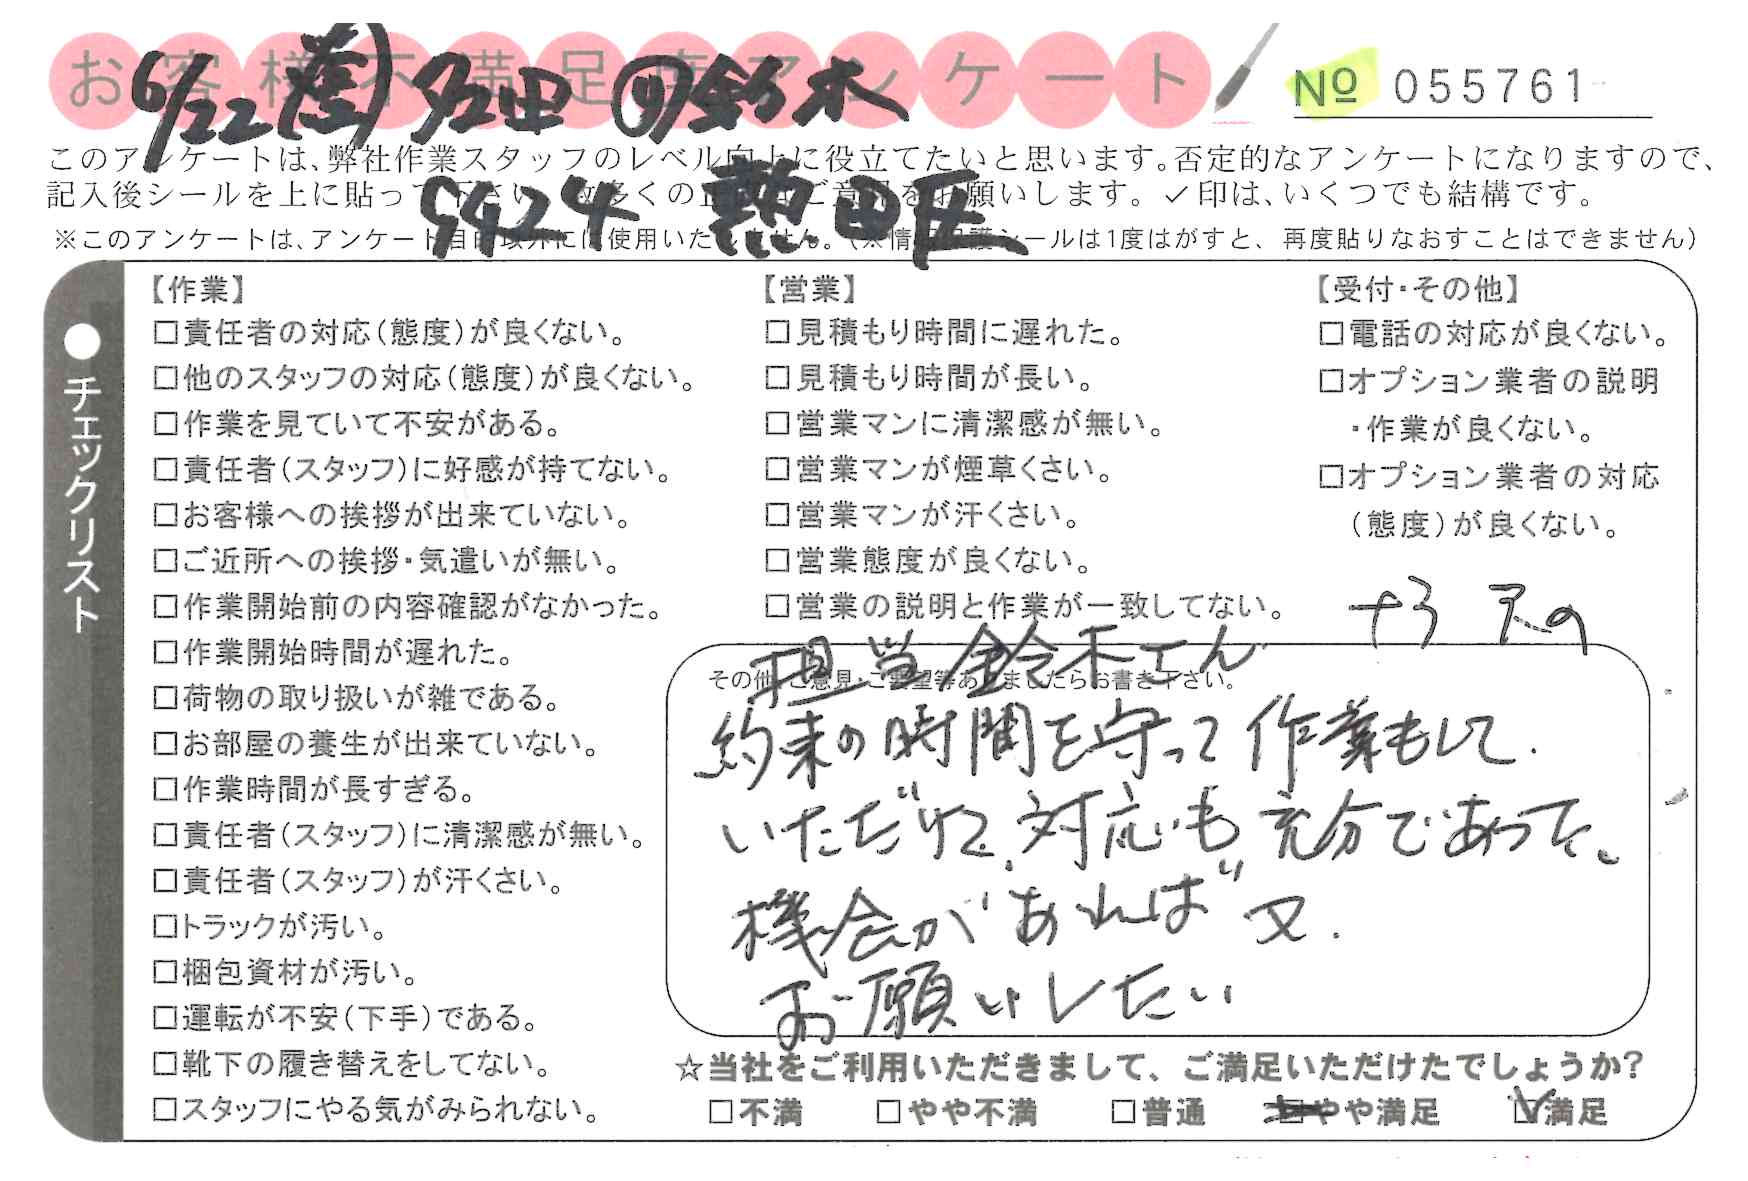 お客様不満足度アンケート
№ 055761
6/22 鈴木
このアンケートは、弊社作業スタッフのレベル向上に役立てたいと思います。否定的なアンケートになりますので、
記入後シールを上に貼って下さい。数多くの正直なご意見をお願いします。✓印は、いくつでも結構です。
9424 熱田区
※このアンケートは、アンケート目的以外には使用いたしません。（※情報保護シールは1度はがすと、再度貼りなおすことはできません）
●チェックリスト
【作業】
□責任者の対応（態度）が良くない。
□他のスタッフの対応（態度）が良くない。
□作業を見ていて不安がある。
□責任者（スタッフ）に好感が持てない。
□お客様への挨拶が出来ていない。
□ご近所への挨拶・気遣いが無い。
□作業開始前の内容確認がなかった。
□作業開始時間が遅れた。
□荷物の取り扱いが雑である。
□お部屋の養生が出来ていない。
□作業時間が長すぎる。
□責任者（スタッフ）に清潔感が無い。
□責任者（スタッフ）が汗くさい。
□トラックが汚い。
□梱包資材が汚い。
□運転が不安（下手）である。
□靴下の履き替えをしてない。
□スタッフにやる気がみられない。
【営業】
□見積もり時間に遅れた。
□見積もり時間が長い。
□営業マンに清潔感が無い。
□営業マンが煙草くさい。
□営業マンが汗くさい。
□営業態度が良くない。
□営業の説明と作業が一致してない。
【受付・その他】
□電話の対応が良くない。
□オプション業者の説明
・作業が良くない。
□オプション業者の対応
（態度）が良くない。
その他、ご意見・ご要望等ありましたらお書き下さい。
担当鈴木さん
約束の時間を守って作業もして
いただけて、対応も充分であった。
機会があれば又
お願いしたい
☆当社をご利用いただきまして、ご満足いただけたでしょうか？
□不満 □やや不満 □普通 □やや満足 ☑満足